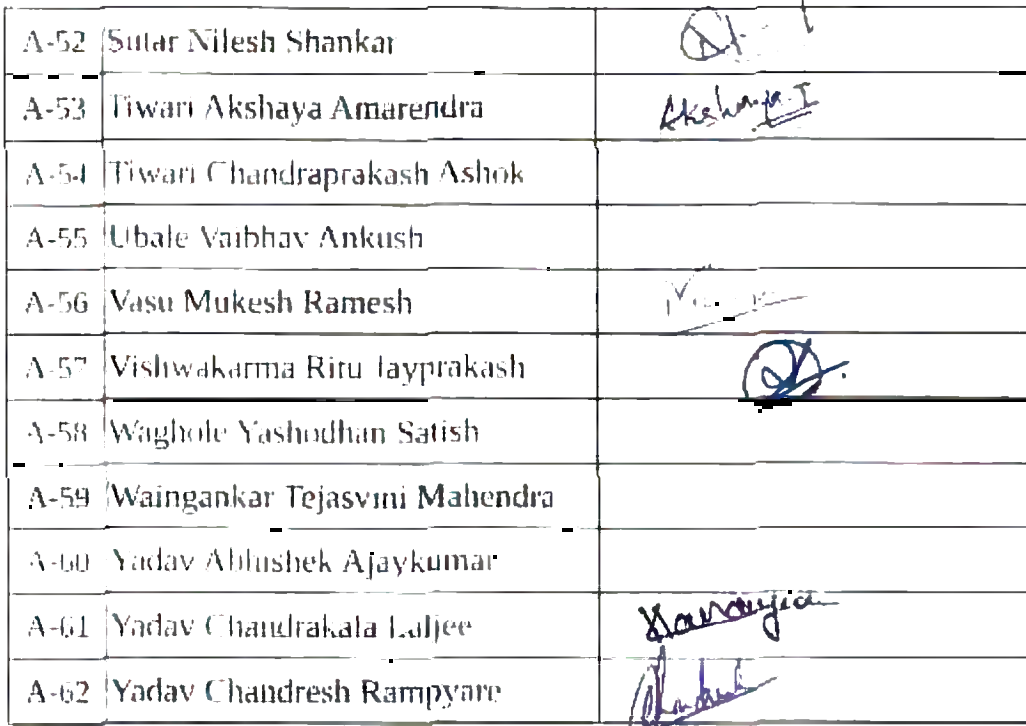 A-52 Sutar Nilesh Shankar
A-53 Tiwari Akshaya Amarendra Akshaya.T
A-54 Tiwari Chandraprakash Ashok
A-55 Ubale Vaibhav Ankush
A-56 Vasu Mukesh Ramesh
A-57 Vishwakarma Ritu Jayprakash
A-58 Waghole Yashodhan Satish
A-59 Waingankar Tejasvini Mahendra
A-60 Yadav Abhishek Ajaykumar
A-61 Yadav Chandrakala Laljee
A-62 Yadav Chandresh Rampyare